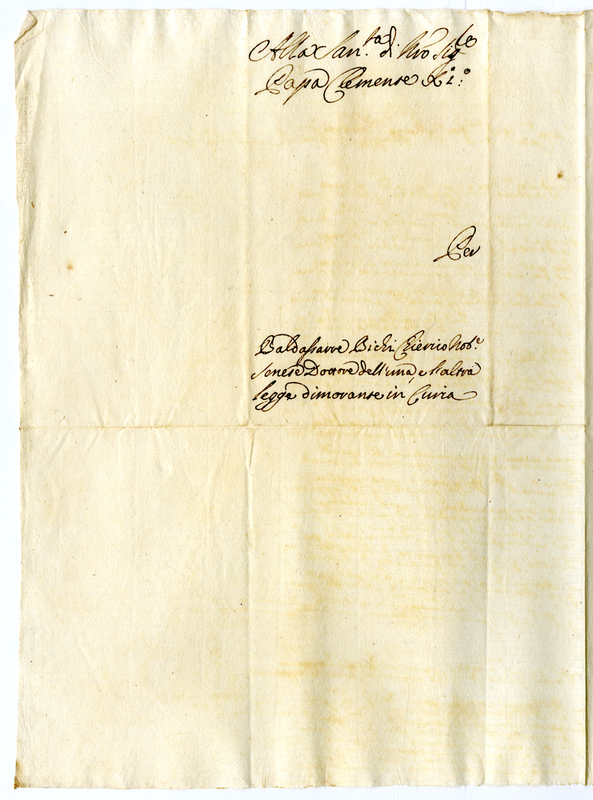 Alla San.ta di Nro Sig.re
Papa Clemente XI.o
Per
Baldassarre Bichi Chierico Nob.e
Senese Dottore dell'una, e l'altra
legge dimorante in Curia